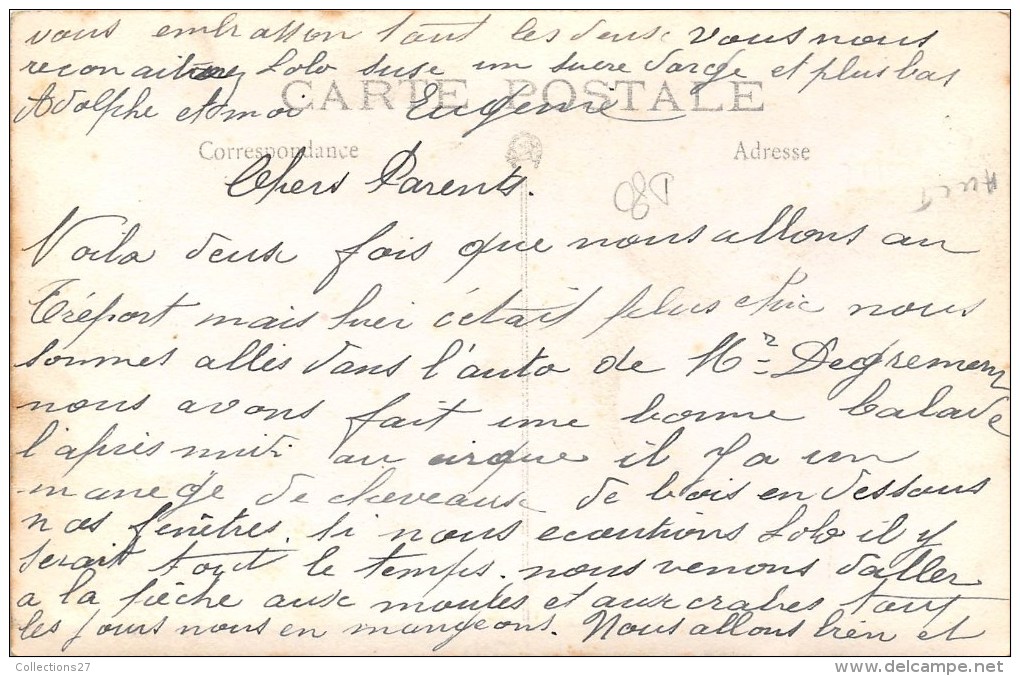 vous embrasson tout les deux vous nous
reconaitrez Lolo suse un sucre dorge et plus bas
Adolphe et moi Eugenie
CARTE POSTALE
Correspondance
Adresse
Chers Parents.
D80
Voila deux fois que nous allons au
Tréport mais hier c'était plus chic nous
sommes allés dans l'auto de Mr Degremont
nous avons fait une bonne balade
l'après midi au cirque il y a un
manege de cheveaux de bois en dessous
nos fenêtres. si nous ecoutions Lolo il y
serait tout le temps. nous venons d'aller
a la pèche aux moules et aux crabes tout
les jours nous en mangeons. Nous allons bien et
Collections27
delcampe.net